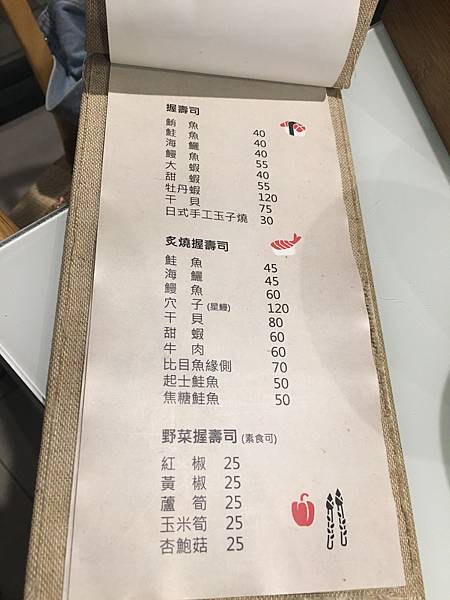 握壽司
鮪魚 40
鮭魚 40
海鱺 40
鰻魚 55
大蝦 40
甜蝦 55
牡丹蝦 120
干貝 75
日式手工玉子燒 30
炙燒握壽司
鮭魚 45
海鱺 45
鰻魚 60
穴子 (星鰻) 120
干貝 80
甜蝦 60
牛肉 60
比目魚緣側 70
起士鮭魚 50
焦糖鮭魚 50
野菜握壽司 (素食可)
紅椒 25
黃椒 25
蘆筍 25
玉米筍 25
杏鮑菇 25